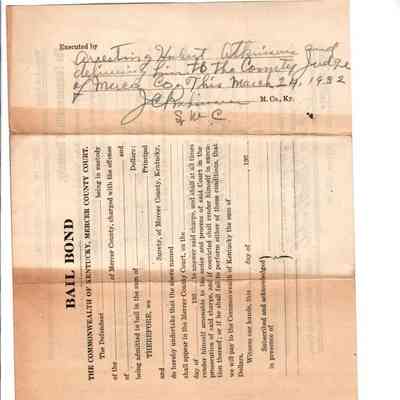 Executed by
Arresting Hubert Atkinson and
delivering him to the County Judge
of Mercer Co. This March 24, 1932
M. Co., Ky.
S. M. C.
BAIL BOND
THE COMMONWEALTH OF KENTUCKY, MERCER COUNTY COURT.
The Defendant being in custody
of the of Mercer County, charged with the offense
of and
being admitted to bail in the sum of Dollars:
THEREFORE, we Principal
and Surety, of Mercer County, Kentucky,
do hereby undertake that the above named
shall appear in the Mercer County Court, on the
day of 193 to answer said charge, and shall at all times
render himself amenable to the order and process of said Court in the
prosecution of said charge, and if convicted shall render himself in execu-
tion thereof; or if he shall fail to perform either of these conditions, that
we will pay to the Commonwealth of Kentucky the sum of
Dollars.
Witness our hands, this day of , 193
Subscribed and acknowledged
in presence of